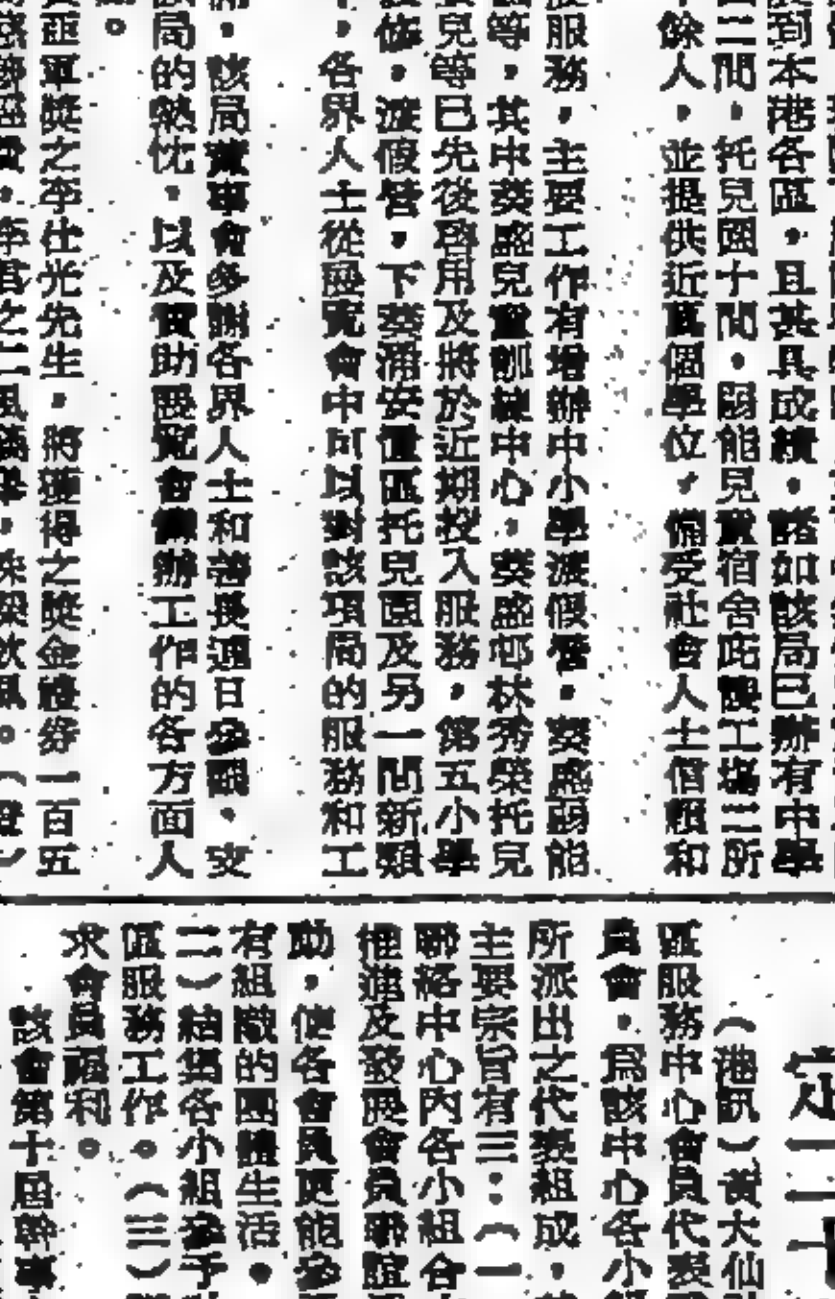 到本港各區，且甚具成績，諸如該局已辦有中學
二間，托兒園十間，弱能兒童宿舍庇護工場二所
餘人，並提供近萬個學位，備受社會人士信賴和
服務，主要工作有增辦中小學渡假營，葵盛弱能
等，其中葵盛兒童訓練中心，葵盛邨林秀榮托兒
兒等已先後啓用及將於近期投入服務，第五小學
依，渡假營，下葵涌安置區托兒園及另一間新類
，各界人士從展覽會中可以對該項局的服務和工
，該局董事會多謝各界人士和善長連日參觀，支
局的熱忱，以及贊助展覽會籌辦工作的各方面人
。
亞軍獎之李仕光先生，將獲得之獎金禮券一百五
，李君之二
定二十
（港訊）黃大仙
區服務中心會員代表
員會，爲該中心各小
所派出之代表組成，
主要宗旨有三：（一
聯絡中心內各小組合
推進及發展會員聯誼
助，使各會員更能參
有組織的團體生活，
二）結集各小組參予
區服務工作。（三）
求會員福利。
該會第十屆幹事